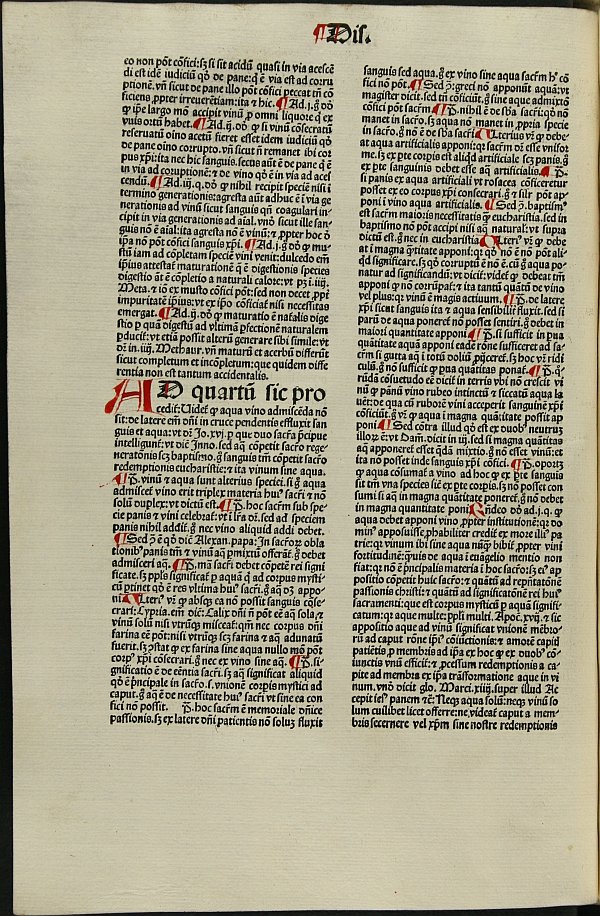 ¶Dis.
eo non põt cõfici: sꝫ si sit acidũ quasi in via acescẽ
di est idẽ iudiciũ qd̾ de pane: qͥ ẽ via est ad corru
ptionẽ. vñ sicut de pane illo põt cõfici peccat tñ cõ
ficiens ꝓpter irreuerẽtiam: ita ⁊ hic. ¶Ad .j. g̊ dõ
ꝙ ip̃e largo mõ accipit vinũ ꝓ omni liquore qͥ ex
vuis ortũ habet. ¶Ad .ij. dõ ꝙ si vinũ cõsecratũ
reseruatũ oĩno acetũ fieret esset idem iudiciũ qd̾
de pane oĩno corrupto. vñ sicut ñ remanet ibi cor
pus xp̃i: ita nec hic sanguis. secus aũt ẽ de pane qͥ ẽ
in via ad corruptionẽ: ⁊ de vino qd̾ ẽ in via ad aces
cendũ. ¶Ad .iij. q. dõ ꝙ nihil recipit speciẽ nisi ĩ
termino generationis: agresta aũt adhuc ẽ ĩ via ge
nerationis ad vinũ sicut sanguis qñ coagulari in
cipit in via generationis ad aĩal. vñõ sicut ille san-
guis nõ ẽ aĩal: ita agresta nõ ẽ vinũ: ⁊ ꝓpter hoc ð
ip̃a nõ põt cõfici sanguis xp̃i. ¶Ad .j. g̊ dõ ꝙ mu-
stũ iam ad cõpletam speciẽ vini venit: dulcedo em̃
ip̃ius attestat̃ maturationẽ qͥ ẽ digestionis species
digestio aũt ẽ cõpletio a naturali calore: vt pꝫ ĩ .iiij.
Meta. ⁊ iõ ex musto cõfici põt: sed non decet ꝓpt̃
impuritatẽ ip̃ius: vt ex ip̃o cõficiat̃ nisi necessitas
emergat. ¶Ad .ij. dõ ꝙ maturatio ẽ natalis dige
stio ꝑ quã digestũ ad vltimã ꝑfectionẽ naturalem
ꝑducit̃: vt etiã possit alterũ generare sibi simile: vt
dr̃ in .iiij. Metheaur. vñ maturũ et acerbũ differũt
sicut completum et incõpletum: que quidem diffe
rentia non est tantum accidentalis.
AD quartũ sic pro
cedit̃: Videt̃ ꝙ aqua vino admiscẽda nõ
sit: de latere em̃ dñi in cruce pendentis effluxit san
guis et aqua: vt dr̃ Jo. xvj. ꝑ que duo sacr̃a p̃cipue
intelligunt̃: vt dic̃ Inno. sed aq̃ cõpetit sacr̃o rege-
neratõnis scꝫ baptismo. g̊ sanguis tm̃ cõpetit sacr̃o
redemptionis eucharistie: ⁊ ita vinum sine aqua.
¶P̃. vinũ ⁊ aqua sunt alterius speciei. si g̊ aqua
admiscet̃ vino erit triplex materia huiꝰ sacr̃i ⁊ nõ
solũ duplex: vt dictũ est. ¶P̃. hoc sacr̃m sub spe-
cie panis ⁊ vini celebrat̃: vt ĩ lr̃a dr̃. sed ad speciem
panis nihil addit̃. g̊ nec vino aliquid addi debet.
¶Sed ꝯ̃ ẽ qd̾ dic̃ Alexan. papa: In sacr̃oꝝ obla
tionibꝰ panis tm̃ ⁊ vinũ aq̃ ꝑmixtũ offerat̃. g̊ debet
admisceri aq̃. ¶P̃. mã sacr̃i debet cõpetẽ rei signi
ficate. sꝫ ppl̃s significat̃ ꝑ aquã qͥ ad corpus mysti-
cũ ꝑtinet qd̾ ẽ res vltima huiꝰ sacr̃i. g̊ aq̃ dꝫ appo-
ni. Vlteriꝰ vr̃ ꝙ absqꝫ ea nõ possit sanguis cõse-
crari: Cypria. em̃ dic̃: Calix dñi ñ põt eẽ aq̃ sola, ⁊
vinũ solũ nisi vtrũqꝫ misceat̃: qm̃ nec corpus dñi
farina eẽ põt: nisi vtrũqꝫ scꝫ farina ⁊ aq̃ adunatũ
fuerit. sꝫ ꝯstat ꝙ ex farina sine aqua nullo mõ põt
corpꝰ xp̃i cõsecrari. g̊ nec ex vino sine aq̃. ¶P̃. si-
gnificatio ẽ de eẽntia sacr̃i. sꝫ aq̃ significat aliquid
qd̾ ẽ p̃ncipale in sacr̃o .s. vnionẽ corpis mystici ad
caput. g̊ aq̃ ẽ de necessitate huiꝰ sacr̃i vt sine ea con
fici nõ possit. P̃. hoc sacr̃m ẽ memoriale dñice
passionis. sꝫ ex latere dñi patientis nõ soluꝫ fluxit
sanguis sed aqua. g̊ ex vino sine aqua sacr̃m hͦ cõ
fici nõ põt. ¶Sed ꝯ̃: greci nõ apponũt aquã: vt
magister dicit. sed tñ cõficiũt. g̊ sine aque admixtõ
cõfici põt sacr̃m. ¶P̃. nihil ẽ de sb̃a sacr̃i: qd̾ nõ
manet in sacr̃o. sꝫ aqua nõ manet in ꝓpria specie
in sacr̃o. g̊ nõ ẽ de sb̃a sacr̃i. Vlterius vr̃ ꝙ debe
at aqua artificialis apponi: qꝛ sacr̃m dꝫ esse vnifor
me. sꝫ ex ꝑte corpis est aliqd̾ artificiale scꝫ panis. g̊
ex ꝑte sanguinis debet esse aq̃ artificialis. ¶P̃.
si panis ex aqua artificiali vt rosacea cõficeretur
posset ex eo corpus xp̃i consecrari. g̊ ⁊ sil̃r põt ap-
poni ĩ vino aqua artificialis. ¶Sed ꝯ̃. baptismꝰ
est sacr̃m maioris necessitatis ꝙ eucharistia. sed in
baptismo nõ põt accipi nisi aq̃ natural: vt supra
dictũ est. g̊ nec in eucharistia. Vlteriꝰ vr̃ ꝙ debe
at ĩ magna q̃ntitate apponi: qꝛ qd̾ nõ ẽ nõ põt ali-
qd̾ significare. sꝫ qd̾ corruptũ ẽ nõ ẽ. cũ g̊ aqua po-
natur ad significandũ: vt dicit̃: videt̃ ꝙ debeat tm̃
apponi ꝙ nõ corrũpat̃: ⁊ ita tantũ quãtũ de vino
vel plus: qꝛ vinũ ẽ magis actiuum. ¶P̃. de latere
xp̃i sicut sanguis ita ⁊ aqua sensibilit̃ fluxit. sed si
parũ de aqua poneret̃ nõ posset sentiri. g̊ debet in
maiori quantitate apponi. ¶P̃. si sufficit in ꝑua
quãtitate aquã apponi eadẽ rõne sufficeret ad sa-
cr̃m si gutta aq̃ ĩ totũ doliũ ꝓijceret̃. sꝫ hoc vr̃ ridi
culũ. g̊ nõ sufficit ꝙ ꝑua quãtitas ponat̃. ¶P̃. q-
rũdã cõsuetudo eẽ dicit̃ in terris vbi nõ crescit vi
nũ ꝙ pãnũ vino rubeo intinctũ ⁊ siccatũ aqua la
uẽt: de qua cũ ruborẽ vini acceperit sanguinẽ xp̃i
cõficiũt. g̊ vr̃ ꝙ aqua ĩ magna quãtitate possit ap
poni. ¶Sed cõtra illud qd̾ est ex duobꝰ neutruꝫ
illoꝝ ẽ: vt Dam. dicit in .iij. sed si magna quãtitas
aq̃ apponeret̃ esset q̃dã mixtio. g̊ nõ esset vinũ: et
ita nõ posset inde sanguis xp̃i cõfici. ¶P̃. oportꝫ
ꝙ aqua cõsumat̃ a vino ad hoc ꝙ ex ꝑte sanguis
sit tm̃ vna species sic̃ ex ꝑte corpis. sꝫ nõ posset con
sumi si aq̃ in magna quãtitate poneret̃. g̊ nõ debet
in magna quantitate poni. Rñdeo dõ ad .j. q. ꝙ
aqua debet apponi vino ꝓpter institutionẽ: qꝛ do-
minꝰ apposuisse ꝓbabiliter credit̃ ex more illiꝰ pa
trie: qꝛ vinum ibi sine aqua nũqͣꝫ bibit̃ ꝓpter vini
fortitudinẽ: q̃uis de aqua ĩ euãgelio mentio non
fiat: qꝛ nõ ẽ p̃ncipalis materia ĩ hoc sacr̃o: sꝫ eiꝰ ap
positio cõpetit huic sacr̃o: ⁊ quãtũ ad rep̃ntatõnẽ
passionis christi: ⁊ quãtũ ad significatõnẽ rei huiꝰ
sacramenti: que est corpus mysticũ ꝑ aquã signifi-
catum: qꝛ aque multe: ppl̃i multi. Apoc̃. xvij. ⁊ sic
appositio aque ad vinũ significat vnionẽ mẽbro-
rũ ad caput rõne ip̃iꝰ cõiũctionis: ⁊ amorẽ capiti
patiẽtis ꝑ membris ad ip̃a ex hoc ꝙ ex duobꝰ cõ-
iunctis vnũ efficit̃: ⁊ ꝓcessum redemptionis a ca-
pite ad membra ex ip̃a trãsformatione aque in vi
num. vnõ dicit glo. Marci. xiiij. super illud Ac-
cepit iesꝰ panem ⁊c̃: Neqꝫ aqua solũ: neqꝫ vinũ so
lum cuilibet licet offerre: ne, videat̃ caput a mem-
bris secernere vel xp̃m sine nostre redemptionis